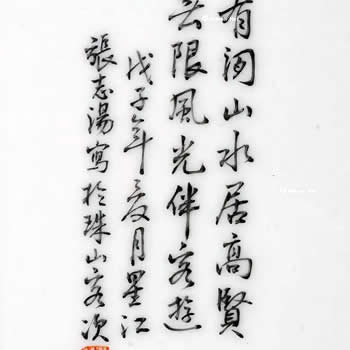 有関山水居高賢
无限風光伴客遊
戊子年夏月星江
張志湯寫於珠山客次